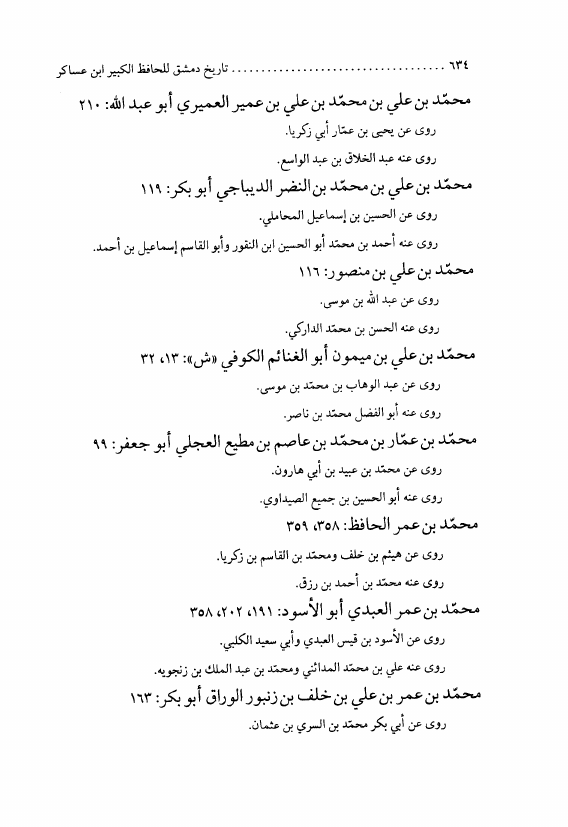 ٦٣٤ .................................... تاريخ دمشق للحافظ الكبير ابن عساكر
محمّد بن علي بن محمّد بن علي بن عمير العميري أبو عبد الله: ٢١٠
روى عن يحيى بن عمّار أبي زكريا.
روى عنه عبد الخلاق بن عبد الواسع.
محمّد بن علي بن محمّد بن النضر الديباجي أبو بكر: ١١٩
روى عن الحسين بن إسماعيل المحاملي.
روى عنه أحمد بن محمّد أبو الحسين ابن النقور وأبو القاسم إسماعيل بن أحمد.
محمّد بن علي بن منصور: ١١٦
روى عن عبد الله بن موسى.
روى عنه الحسن بن محمّد الداركي.
محمّد بن علي بن ميمون أبو الغنائم الكوفي «ش»: ١٣، ٣٢
روى عن عبد الوهاب بن محمّد بن موسى.
روى عنه أبو الفضل محمّد بن ناصر.
محمّد بن عمّار بن محمّد بن عاصم بن مطيع العجلي أبو جعفر: ٩٩
روى عن محمّد بن عبيد بن أبي هارون.
روى عنه أبو الحسين بن جميع الصيداوي.
محمّد بن عمر الحافظ: ٣٥٨، ٣٥٩
روى عن هيثم بن خلف ومحمّد بن القاسم بن زكريا.
روى عنه محمّد بن أحمد بن رزق.
محمّد بن عمر العبدي أبو الأسود: ١٩١، ٢٠٢، ٣٥٨
روى عن الأسود بن قيس العبدي وأبي سعيد الكلبي.
روى عنه علي بن محمّد المدائني ومحمّد بن عبد الملك بن زنجويه.
محمّد بن عمر بن علي بن خلف بن زنبور الوراق أبو بكر: ١٦٣
روى عن أبي بكر محمّد بن السري بن عثمان.